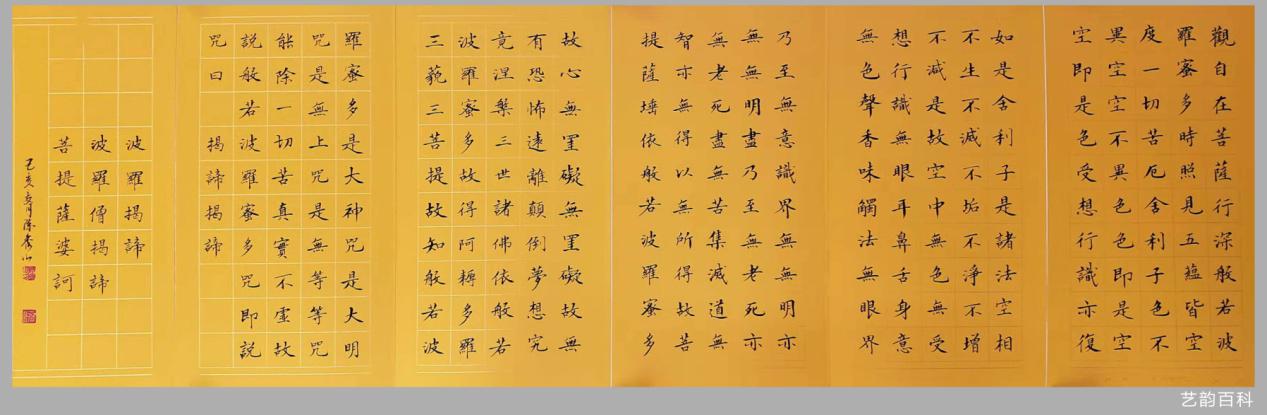 觀自在菩薩行深般若波
羅蜜多時照見五蘊皆空
度一切苦厄舍利子色不
異空空不異色色即是空
空即是色受想行識亦復
如是舍利子是諸法空相
不生不滅不垢不淨不增
不減是故空中無色無受
想行識無眼耳鼻舌身意
無色聲香味觸法無眼界
乃至無意識界無無明亦
無無明盡乃至無老死亦
無老死盡無苦集滅道無
智亦無得以無所得故菩
提薩埵依般若波羅蜜多
故心無罣礙無罣礙故無
有恐怖遠離顛倒夢想究
竟涅槃三世諸佛依般若
波羅蜜多故得阿耨多羅
三藐三菩提故知般若波
羅蜜多是大神咒是大明
咒是無上咒是無等等咒
能除一切苦真實不虛故
說般若波羅蜜多咒即說
咒曰 揭諦揭諦
波羅揭諦
波羅僧揭諦
菩提薩婆訶
己亥
艺韵百科